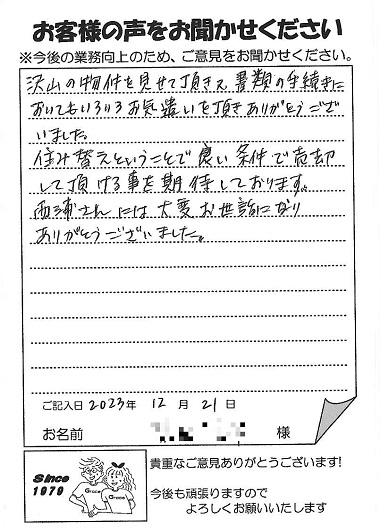 お客様の声をお聞かせください
※今後の業務向上のため、ご意見をお聞かせください。
沢山の物件を見せて頂き又、書類の手続きに
おいてもいろいろお気遣いを頂きありがとうござ
いました。
住み替えということで良い条件で売却
して頂ける事を期待しております。
西浦さんには大変お世話になり
ありがとうございました。
ご記入日 2023年 12月 21日
お名前 様
Since
1979
Grace
Grace
貴重なご意見ありがとうございます!
今後も頑張りますので
よろしくお願いいたします